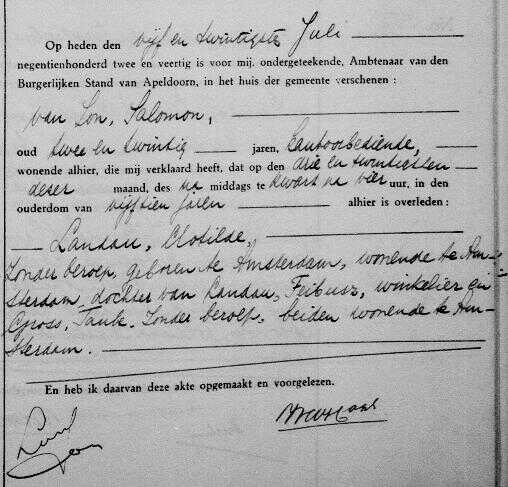 Op heden den vijf en twintigste Juli
negentienhonderd twee en veertig is voor mij, ondergeteekende, Ambtenaar van den
Burgerlijken Stand van Apeldoorn, in het huis der gemeente verschenen :
van Lon, Salomon,
oud twee en twintig jaren, Kantoorbediende,
wonende alhier, die mij verklaard heeft, dat op den drie en twintigsten
dezer maand, des na middags te kwart na vier uur, in den
ouderdom van vijftien jaren alhier is overleden :
Landau, Clotilde,
zonder beroep, geboren te Amsterdam, wonende te Am-
sterdam, dochter van Landau, Feibusz, winkelier en
Gross, Taube, zonder beroep, beiden wonende te Am-
sterdam.
En heb ik daarvan deze akte opgemaakt en voorgelezen.